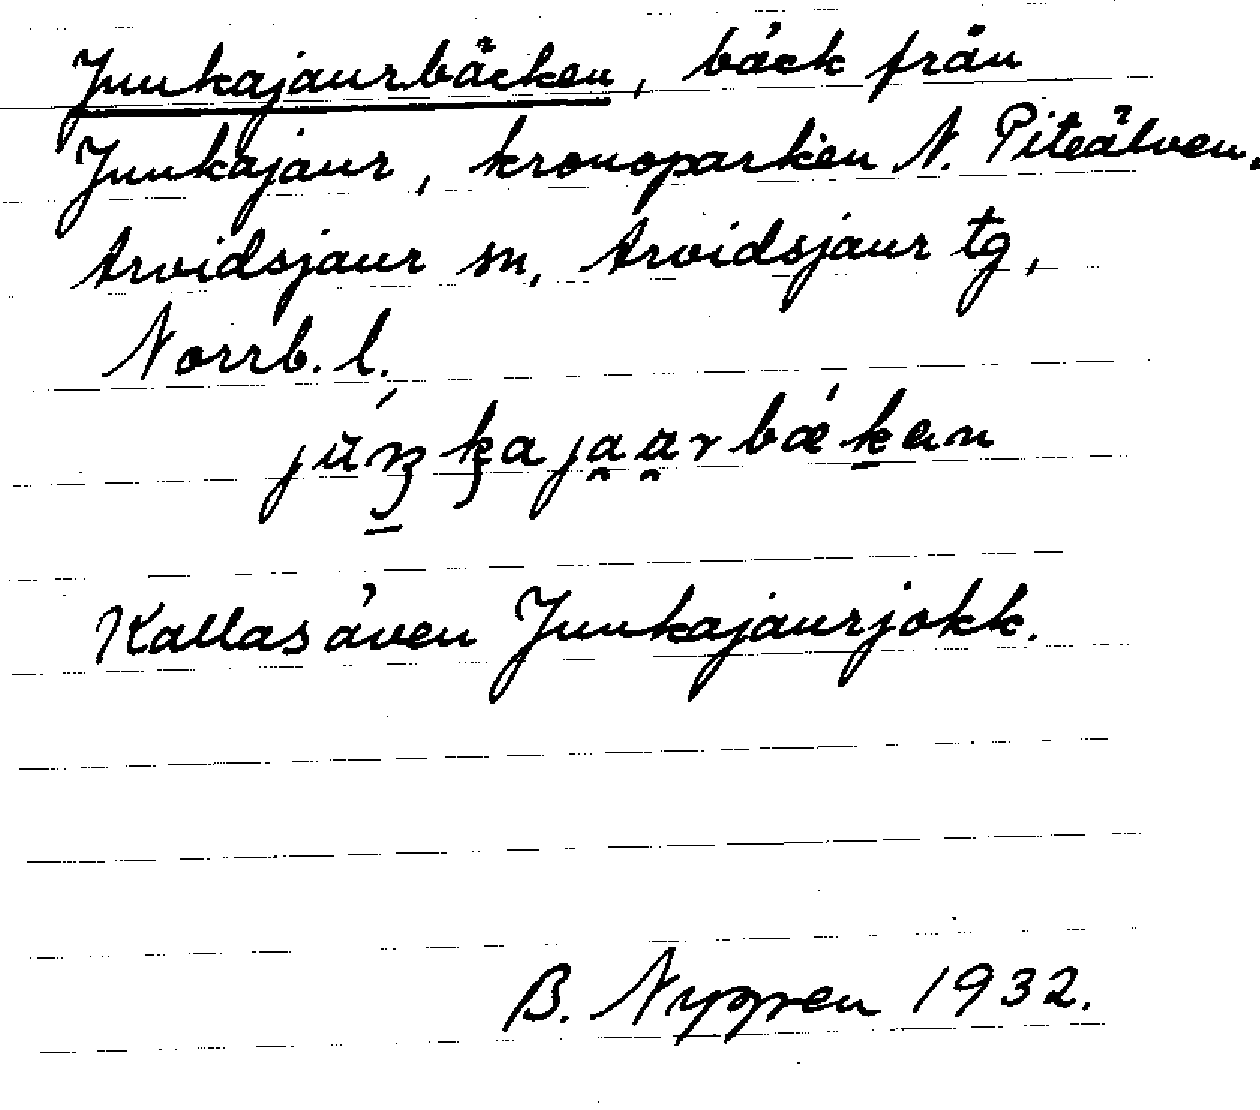 Junkajaurbäcken, bäck från
Junkajaur, kronoparken N. Piteälven.
Arvidsjaur sn, Arvidsjaur tg,
Norrb. l.
Kallas även Junkajaurjokk.
B. Nygren 1932.